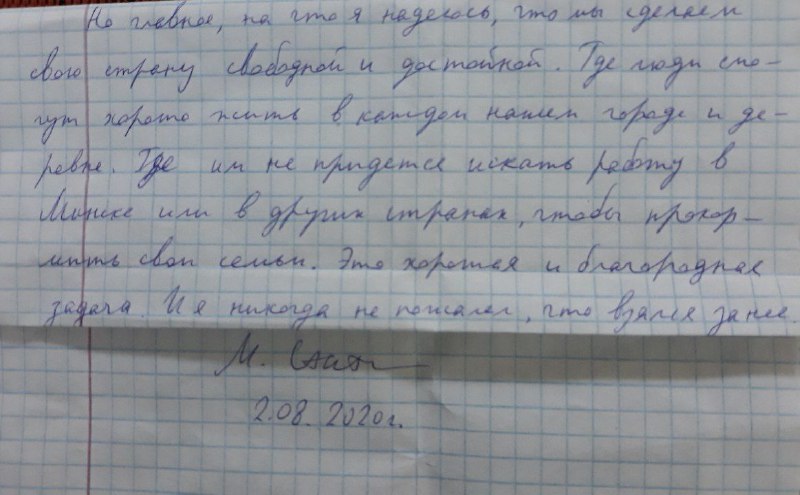 Но главное, на что я надеюсь, что мы сделаем
свою страну свободной и достойной. Где люди смо-
гут хорошо жить в каждом нашем городе и де-
ревне. Где им не придется искать работу в
Минске или в других странах, чтобы прокор-
мить свои семьи. Это хорошая и благородная
задача. И я никогда не пожалел, что взялся за нее.
М.
2.08.2020г.